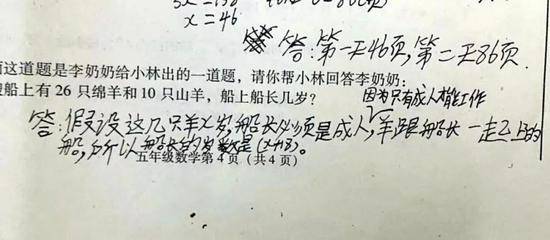 x=46
答:第一天46页,第二天86页.
面这道题是李奶奶给小林出的一道题，请你帮小林回答李奶奶:
船上有 26 只绵羊和 10 只山羊，船上船长几岁?
因为只有成人才能工作
答:假设这几只羊x岁,船长必须是成人,羊跟船长一起上的
船,所以船长的岁数是(x+18)。
五年级数学第 4 页（共 4 页）